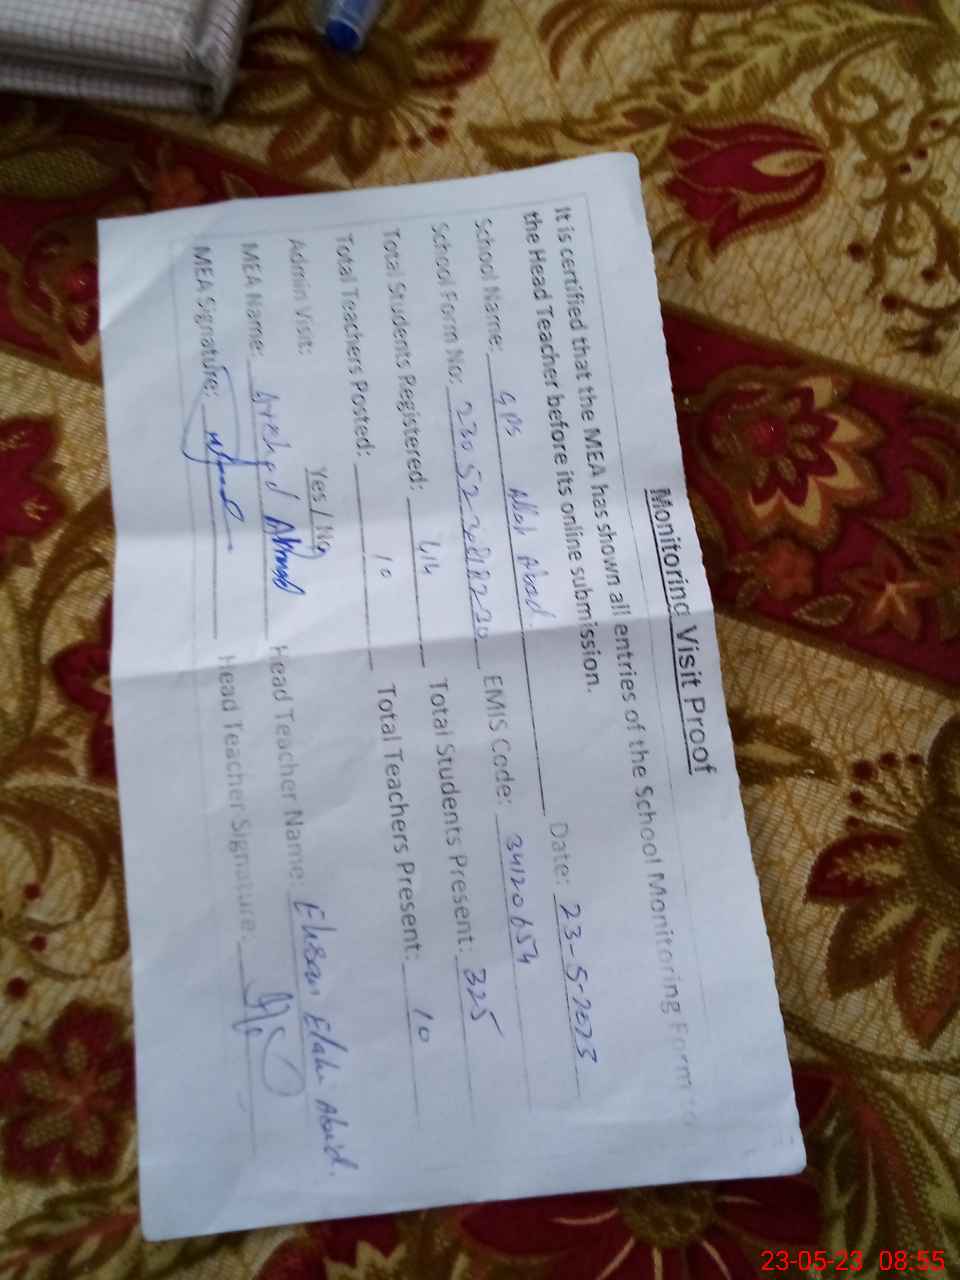 Monitoring Visit Proof
It is certified that the MEA has shown all entries of the School Monitoring Form to
the Head Teacher before its online submission.
School Name: GPS Allah Abad Date: 23-5-2023
School Form No: EMIS Code: 34120654
Total Students Registered: 414 Total Students Present: 325
Total Teachers Posted: 10 Total Teachers Present: 10
Admin Visit: Yes / No
MEA Name: Arshad Ahmad Head Teacher Name: Ehsan Elahi
MEA Signature: Head Teacher Signature:
23-05-23 08:55